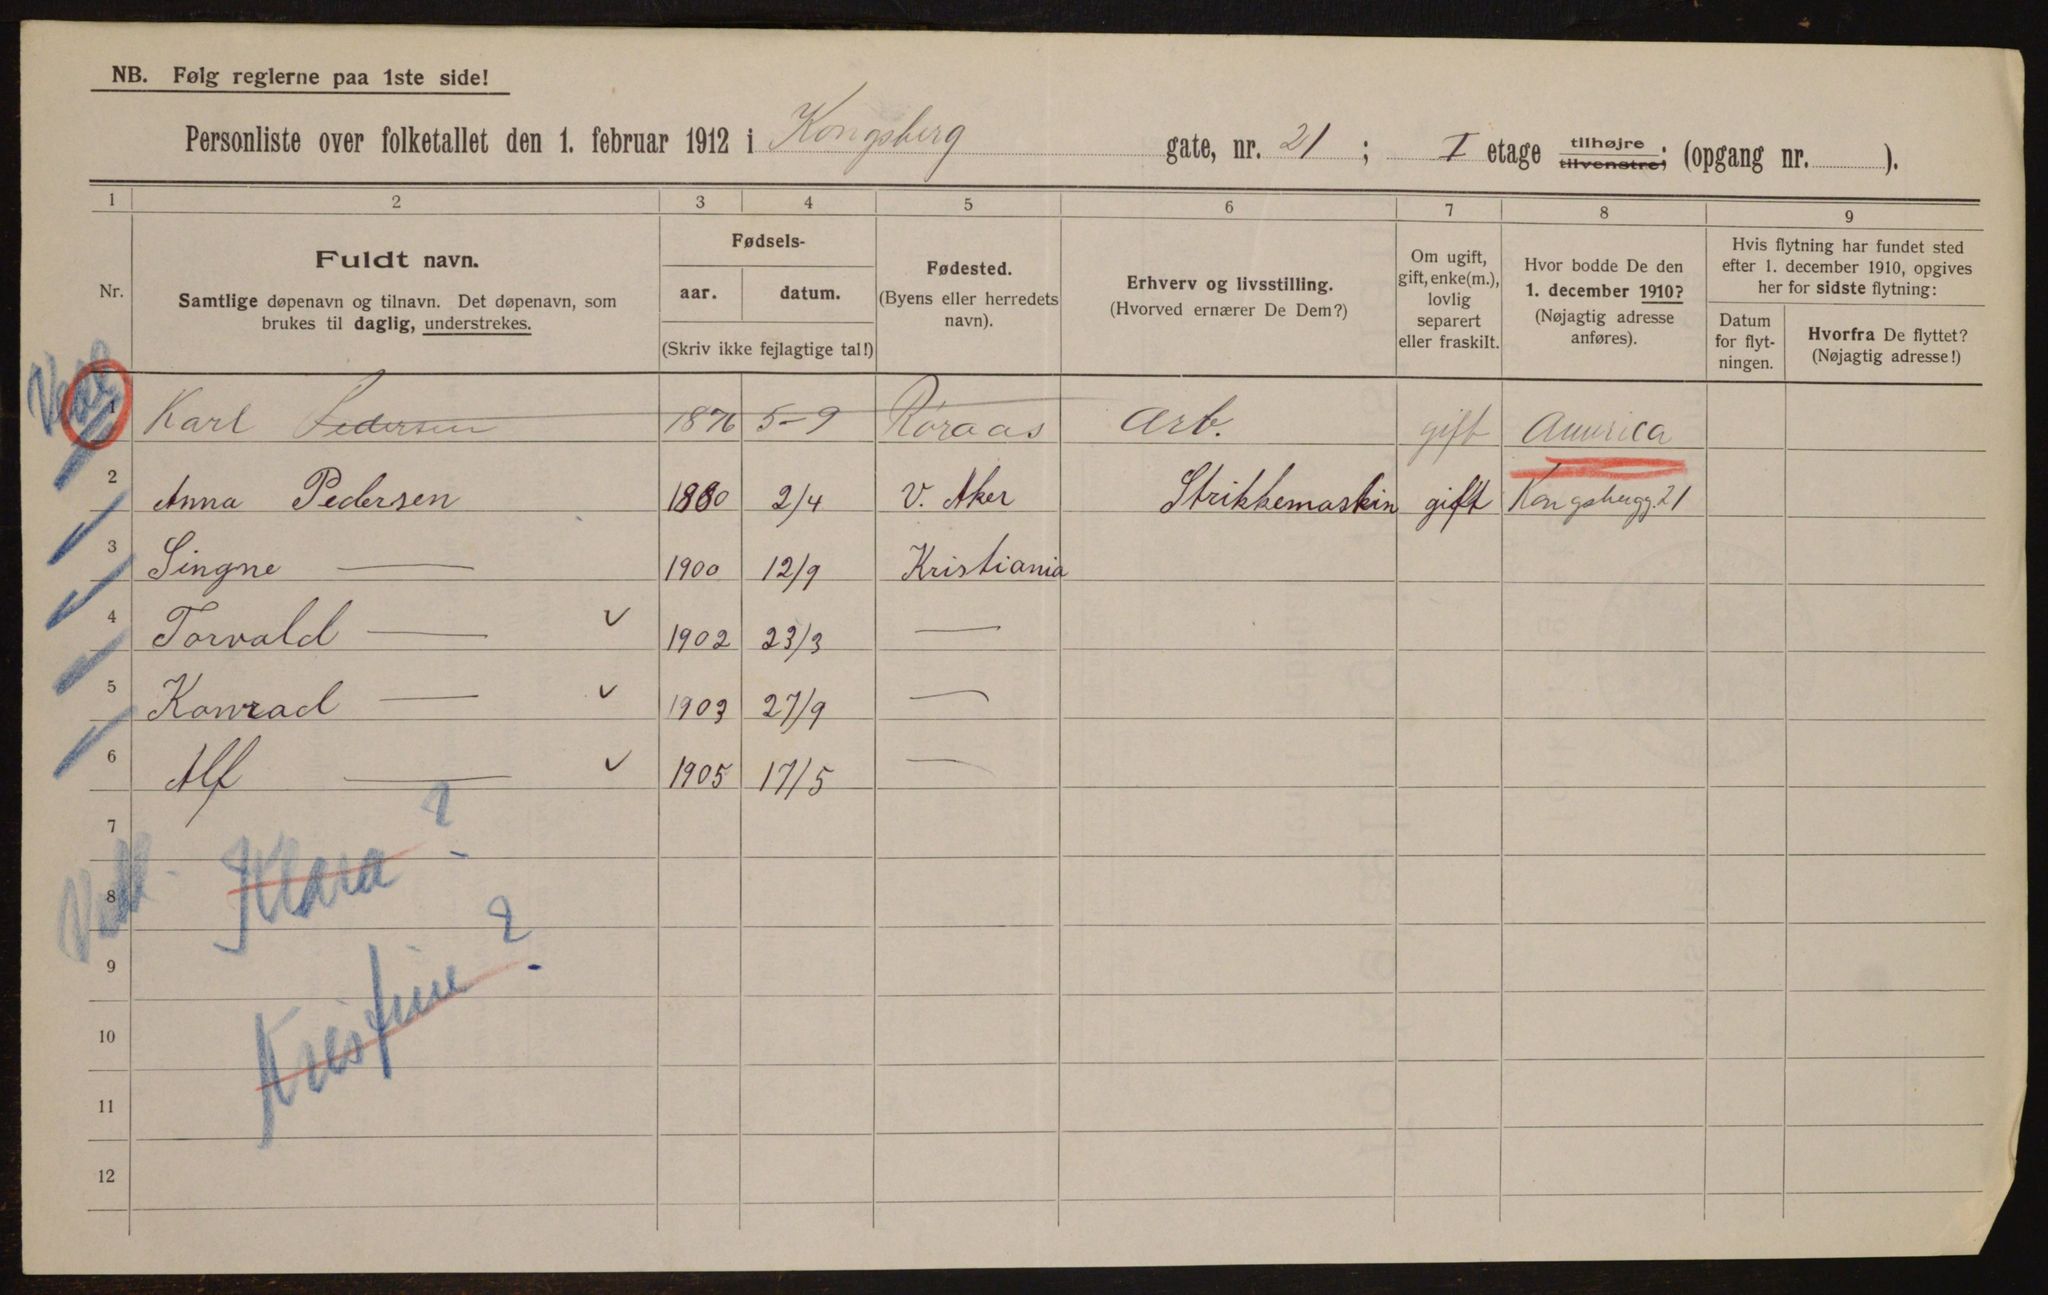 NB. Følg reglerne paa 1ste side!
Personliste over folketallet den 1. februar 1912 i Kongsberg gate, nr. 21 ; I etage tilhøjre tilvenstre; (opgang nr. ).
1 2 3 4 5 6 7 8 9
Nr.
Fuldt navn.
Samtlige døpenavn og tilnavn. Det døpenavn, som
brukes til daglig, understrekes.
Fødsels-
aar. datum.
(Skriv ikke fejlagtige tal!)
Fødested.
(Byens eller herredets
navn).
Erhverv og livsstilling.
(Hvorved ernærer De Dem?)
Om ugift,
gift, enke(m.),
lovlig
separert
eller fraskilt.
Hvor bodde De den
1. december 1910?
(Nøjagtig adresse
anføres).
Hvis flytning har fundet sted
efter 1. december 1910, opgives
her for sidste flytning:
Datum
for flyt-
ningen.
Hvorfra De flyttet?
(Nøjagtig adresse!)
1 Karl Pedersen 1876 5-9 Røraas Arb. gift America
2 Anna Pedersen 1880 2/4 V. Aker Strikkemaskin gift Kongsbergg. 21
3 Singne — 1900 12/9 Kristiania
4 Torvald — v 1902 23/3 —
5 Konrad — v 1903 27/9 —
6 Alf — v 1905 17/5 —
7
8 Klara ?
9
10 Kristine ?
11
12